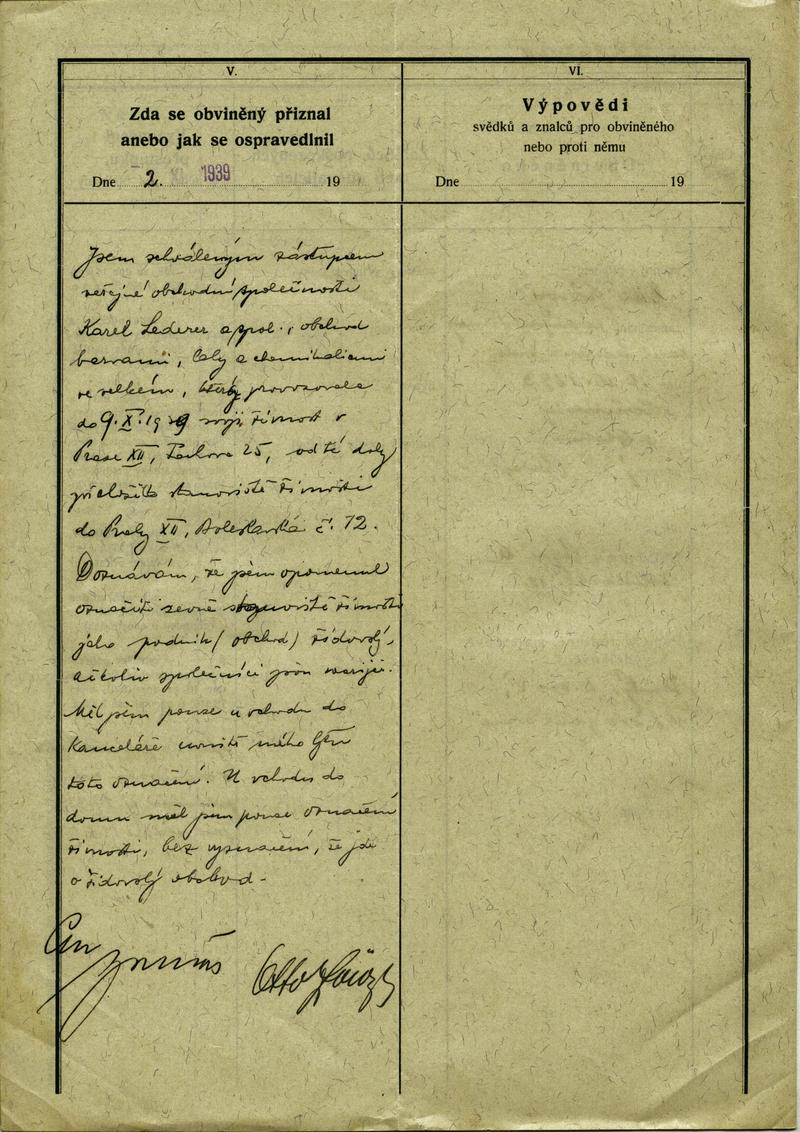 V.
Zda se obviněný přiznal
anebo jak se ospravedlnil
Dne 2. 1939 19
VI.
Výpovědi
svědků a znalců pro obviněného
nebo proti němu
Dne 19
Jsem schváleným zástupcem
veřejné obchodní společnosti
Karel Lederer a spol., obchod
barvami, laky a chemikaliemi
ve velkém, která provozovala
do 9.X.1939 svoji živnost v
Praze XII, 25, od té doby
přeložila stanoviště živnosti
do Prahy XII, Boleslavská č. 12.
Doznávám, že jsem opomenul
označiti zevně stanoviště živnosti
jako podnik (obchod) židovský,
ačkoliv společníci jsou
Měl jsem pouze u vchodu do
kanceláře uvnitř
toto označení. U vchodu do
domu měl jsem pouze označení
živnosti, bez vyznačení, že jde
o židovský obchod.
Otto